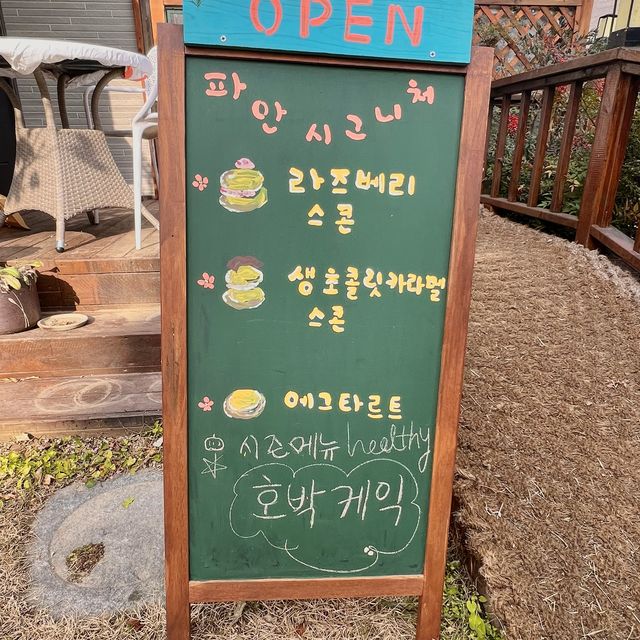 OPEN
파안 시그니처
라즈베리
스콘
생초콜릿카라멜
스콘
에그타르트
시즌메뉴 healthy
호박케익